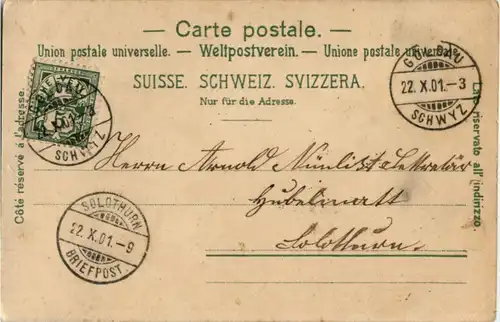 Carte postale.
Union postale universelle. – Weltpostverein. – Unione postale universale.
SUISSE. SCHWEIZ. SVIZZERA.
Nur für die Adresse.
Côté réservé à l'adresse.
Lato riservato all' indirizzo
GOLDAU
22. X. 01. – 3
SCHWYZ
GOLDAU
SCHWYZ
Herrn Arnold Nünlist Sekretär
Hubelmatt
Solothurn.
SOLOTHURN
22. X. 01. – 9
BRIEFPOST.